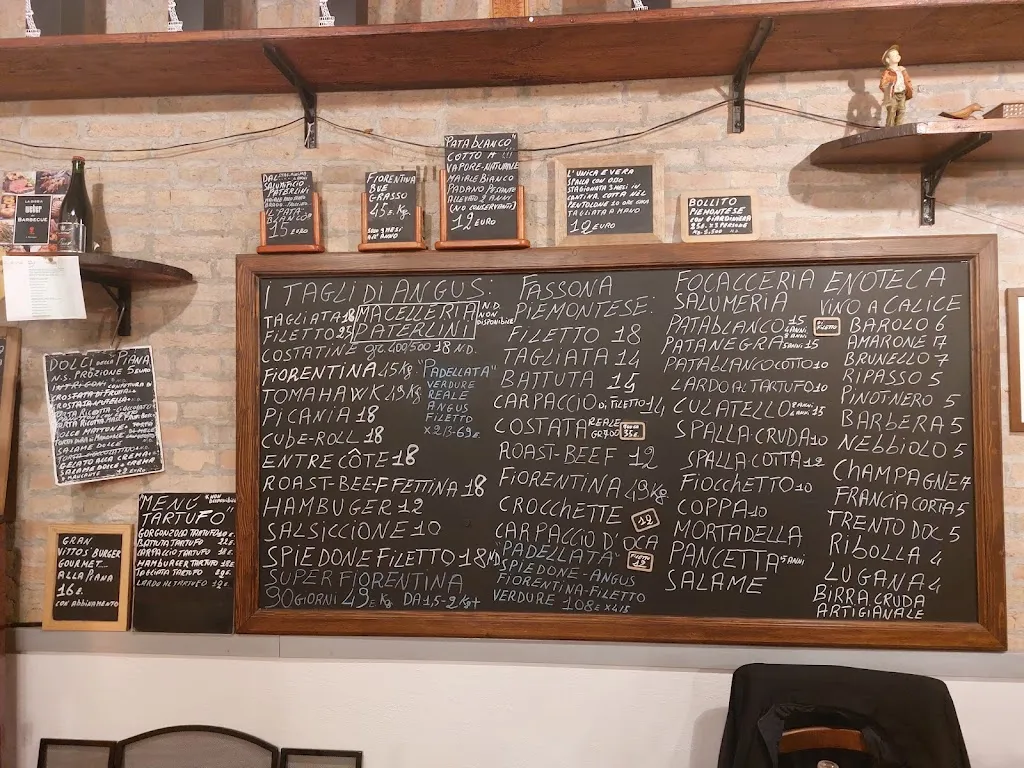 PATERLINI
15 EURO
FIORENTINA
BUE
GRASSO
45 E. Kg.
"PATABLANCO"
COTTO A !!!
VAPORE-NATURALE
MAIALE BIANCO
PADANO PESANTE
ALLEVATO 2 ANNI
(NO CONSERVANTI)
12 EURO
L'UNICA E VERA
SPALLA CON OSSO
STAGIONATA 3 MESI IN
CANTINA, COTTA NEL
PENTOLONE 10 ORE CIRCA
TAGLIATA A MANO
10 EURO
BOLLITO
PIEMONTESE
CON GIARDINIERA
weber
BARBECUE
I TAGLI DI ANGUS:
MACELLERIA
PATERLINI
N.D.
NON
DISPONIBILE
TAGLIATA 18
FILETTO 25
COSTATINE gr. 400/500 18 N.D.
FIORENTINA 45 Kg
TOMAHAWK 49 Kg
PICANIA 18
CUBE-ROLL 18
ENTRECÔTE 18
ROAST-BEEF FETTINA 18
HAMBUGER 12
SALSICCIONE 10
SPIEDONE FILETTO 18 ND
SUPER FIORENTINA
90 GIORNI 49 E Kg DA 1,5-2 Kg+
"PADELLATA"
VERDURE
REALE
ANGUS
FILETTO
X 2/3-69 E.
FASSONA
PIEMONTESE:
FILETTO 18
TAGLIATA 14
BATTUTA 14
CARPACCIO DI FILETTO 14
COSTATA REALE
ROAST-BEEF 12
FIORENTINA 49 Kg
CROCCHETTE 10
CARPACCIO D'OCA
"PADELLATA"
SPIEDONE-ANGUS
FIORENTINA-FILETTO
VERDURE 108 E X 4/5
FOCACCERIA
SALUMERIA
PATABLANCO 15
4 ANNI
PATANEGRA 5 ANNI 15
PATABLANCO COTTO 10
LARDO AL TARTUFO 10
CULATELLO 15
SPALLA CRUDA 10
SPALLA COTTA 12
FIOCCHETTO 10
COPPA 10
MORTADELLA
PANCETTA 5 ANNI
SALAME
ENOTECA
VINO A CALICE
FILETTO
BAROLO 6
AMARONE 7
BRUNELLO 7
RIPASSO 5
PINOT NERO 5
BARBERA 5
NEBBIOLO 5
CHAMPAGNE 7
FRANCIA CORTA 5
TRENTO DOC 5
RIBOLLA 4
LUGANA 4
BIRRA CRUDA
ARTIGIANALE
DOLCI DELLA PIANA
N.S. PRODUZIONE
CROSTATA DI FRUTTA
SALAME DOLCE
GELATO ALLA CREMA
MENÚ "NON DISPONIBILE"
TARTUFO"
GORGONZOLA TARTUFO
BATTUTA TARTUFO
CARPACCIO TARTUFO
HAMBURGER TARTUFO
SPECIATA TARTUFO
LARDO AL TARTUFO
GRAN
VITTOS BURGER
GOURMET...
ALLA PIANA
16 E.
CON ABBINAMENTO